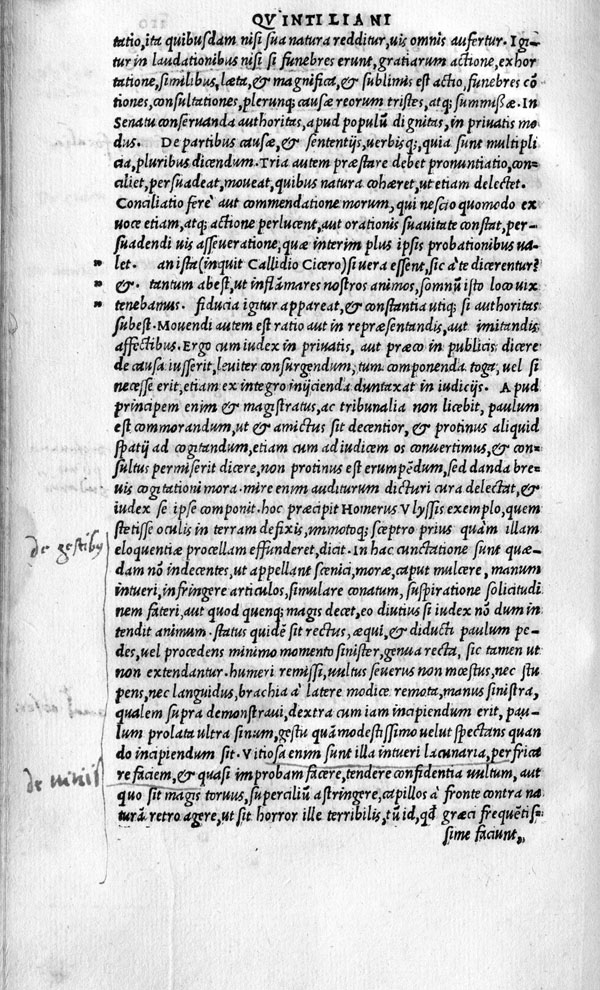 QVINTILIANI
tatio, ita quibusdam nisi sua natura redditur, uis omnis aufertur. Igi-
tur in laudationibus nisi si funebres erunt, gratiarum actione, exhor
tatione, similibus, læta, & magnifica, & sublimis est actio, funebres cō
tiones, consultationes, plerunq; causæ reorum tristes, atq; summissæ. In
Senatu conseruanda authoritas, apud populū dignitas, in priuatis mo
dus. De partibus causæ, & sententijs, uerbisq;, quia sunt multipli
cia, pluribus dicendum. Tria autem præstare debet pronuntiatio, con=
ciliet, persuadeat, moueat, quibus natura cohæret, ut etiam delectet.
Conciliatio ferè aut commendatione morum, qui nescio quomodo ex
uoce etiam, atq; actione perlucent, aut orationis suauitate constat, per-
suadendi uis asseueratione, quæ interim plus ipsis probationibus ua-
let. an ista (inquit Callidio Cicero) si uera essent, sic à te dicerentur?
&. tantum abest, ut inflāmares nostros animos, somnū isto loco uix
tenebamus. fiducia igitur appareat, & constantia utiq; si authoritas
subest. Mouendi autem est ratio aut in repræsentandis, aut imitandis
affectibus. Ergo cum iudex in priuatis, aut præco in publicis dicere
de causa iusserit, leuiter consurgendum, tum componenda toga, uel si
necesse erit, etiam ex integro inijcienda duntaxat in iudicijs. Apud
principem enim & magistratus, ac tribunalia non licebit, paulum
est commorandum, ut & amictus sit decentior, & protinus aliquid
spatij ad cogitandum, etiam cum ad iudicem os conuertimus, & con-
sultus permiserit dicere, non protinus est erumpēdum, sed danda bre-
uis cogitationi mora. mire enim auditurum dicturi cura delectat, &
iudex se ipse componit. hoc præcipit Homerus Vlyssis exemplo, quem
stetisse oculis in terram defixis, immotoq; sceptro prius quàm illam
eloquentiæ procellam effunderet, dicit. In hac cunctatione sunt quæ-
de gestibꝰ
dam nō indecentes, ut appellant scœnici, moræ, caput mulcere, manum
intueri, infringere articulos, simulare conatum, suspiratione solicitudi
nem fateri, aut quod quenq; magis decet, eo diutius si iudex nō dum in
tendit animum. status quidē sit rectus, æqui, & diducti paulum pe-
des, uel procedens minimo momento sinister, genua recta, sic tamen ut
non extendantur. humeri remissi, uultus seuerus non mœstus, nec stu
pens, nec languidus, brachia à latere modice remota, manus sinistra,
qualem supra demonstraui, dextra cum iam incipiendum erit, pau-
lum prolata ultra sinum, gestu quàm modestissimo uelut spectans quan
do incipiendum sit. Vitiosa enim sunt illa intueri lacunaria, perfrica
re faciem, & quasi improbam facere, tendere confidentia uultum, aut
quo sit magis toruus, supercilium astringere, capillos à fronte contra na
turā retro agere, ut sit horror ille terribilis, tū id, qđ græci frequētis-
sime faciunt,